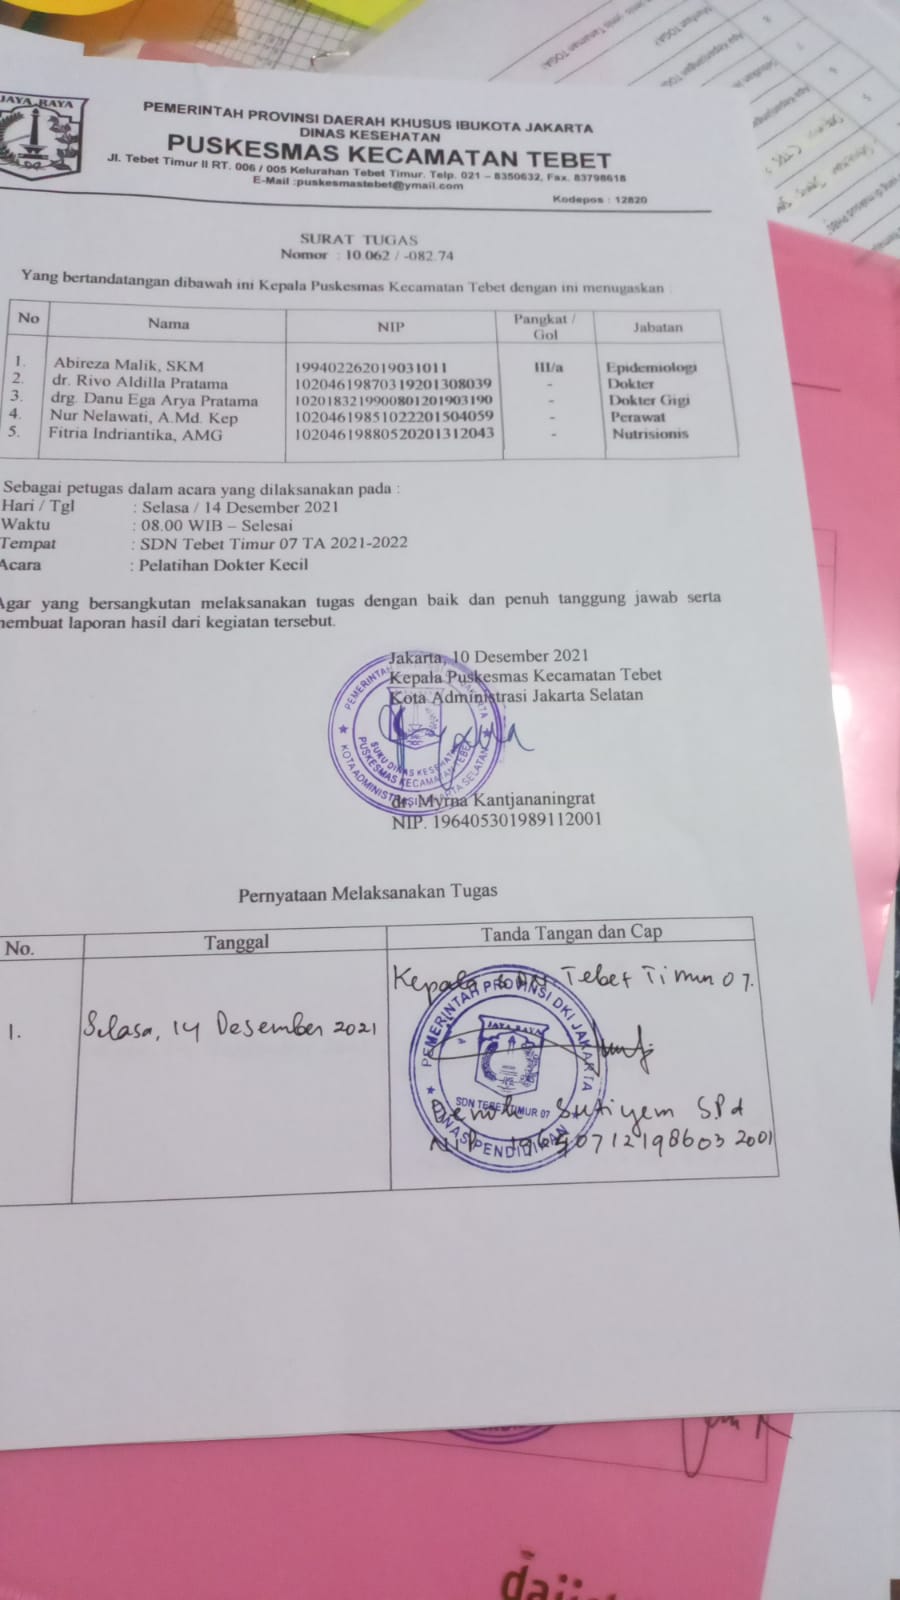 JAYA RAYA
PEMERINTAH PROVINSI DAERAH KHUSUS IBUKOTA JAKARTA
DINAS KESEHATAN
PUSKESMAS KECAMATAN TEBET
Jl. Tebet Timur II RT. 006 / 005 Kelurahan Tebet Timur. Telp. 021 – 8350632, Fax. 83798618
E-Mail :puskesmastebet@ymail.com
Kodepos : 12820
SURAT TUGAS
Nomor : 10.062 / -082.74
Yang bertandatangan dibawah ini Kepala Puskesmas Kecamatan Tebet dengan ini menugaskan
No Nama NIP Pangkat / Gol Jabatan
1. Abireza Malik, SKM 199402262019031011 III/a Epidemiologi
2. dr. Rivo Aldilla Pratama 10204619870319201308039 - Dokter
3. drg. Danu Ega Arya Pratama 1020183219900801201903190 - Dokter Gigi
4. Nur Nelawati, A.Md. Kep 10204619851022201504059 - Perawat
5. Fitria Indriantika, AMG 10204619880520201312043 - Nutrisionis
Sebagai petugas dalam acara yang dilaksanakan pada :
Hari / Tgl : Selasa / 14 Desember 2021
Waktu : 08.00 WIB – Selesai
Tempat : SDN Tebet Timur 07 TA 2021-2022
Acara : Pelatihan Dokter Kecil
Agar yang bersangkutan melaksanakan tugas dengan baik dan penuh tanggung jawab serta
membuat laporan hasil dari kegiatan tersebut.
Jakarta, 10 Desember 2021
Kepala Puskesmas Kecamatan Tebet
Kota Administrasi Jakarta Selatan
SUKU DINAS KESEHATAN
PUSKESMAS KECAMATAN TEBET
KOTA ADMINISTRASI JAKARTA SELATAN
dr. Myrna Kantjananingrat
NIP. 196405301989112001
Pernyataan Melaksanakan Tugas
No. Tanggal Tanda Tangan dan Cap
Kepala SDN Tebet Timur 07.
1. Selasa, 14 Desember 2021
PEMERINTAH PROVINSI DKI JAKARTA
JAYA RAYA
SDN TEBET TIMUR 07
DINAS PENDIDIKAN
Sutiyem S.Pd
NIP 196507121986032001